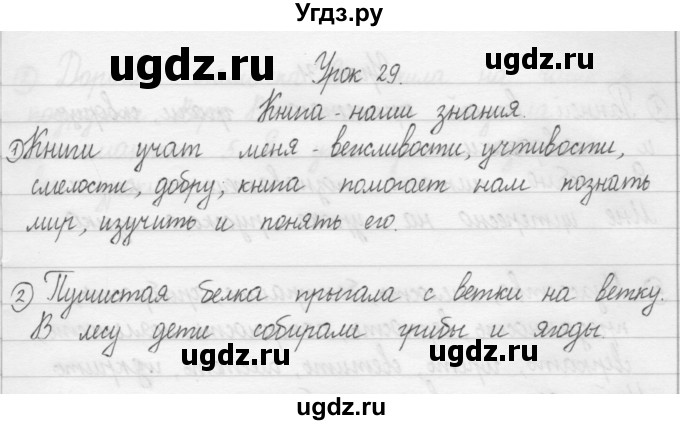 Угдз.ру
Урок 29.
Книга - наши знания.
1) Книги учат меня - вежливости, учтивости,
смелости, добру, книга помогает нам познать
мир, изучить и понять его.
2) Пушистая белка прыгала с ветки на ветку.
В лесу дети собирали грибы и ягоды.
ugdz.ru
ugdz.ru
ugdz.ru
ugdz.ru
ugdz.ru
ugdz.ru
ugdz.ru